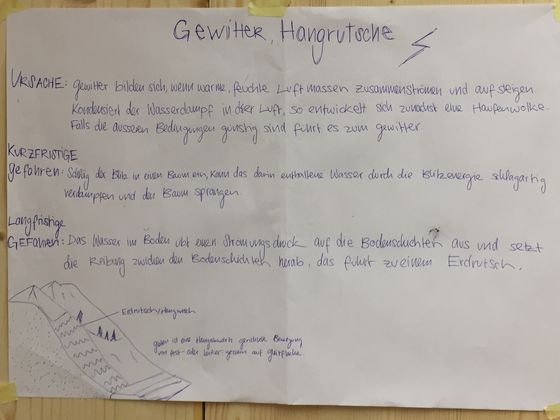 Gewitter, Hangrutsche
URSACHE: gewitter bilden sich, wenn warme, feuchte Luftmassen zusammenströmen und aufsteigen
Kondensiert der Wasserdampf in der Luft, so entwickelt sich zunächst eine Haufenwolke.
Falls die äusseren Bedingungen günstig sind führt es zum gewitter.
KURZFRISTIGE
gefahren: Schlag der Blitz in einen Baum ein, kann das darin enthaltene Wasser durch die Blitzenergie schlagartig
verdampfen und den Baum sprengen.
Langfristige
GEFAHREN: Das Wasser im Boden übt einen Strömungsdruck auf die Bodenschichten aus und setzt
die Reibung zwichen den Bodenschichten herab, das führt zu einem Erdrutsch.
Erdrutsch/Hangrutsch
ist eine Hangabwärts gerichtete Bewegung
von fest- oder locker gestein auf gleitfläche.